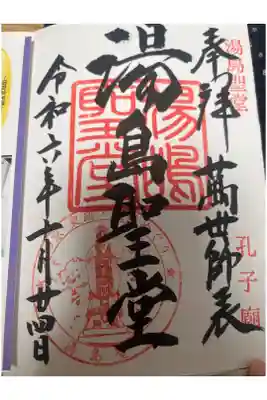 湯島聖堂
孔子廟
奉拝 萬世師表
湯島聖堂
湯嶋
聖堂
令和六年十月廿四日